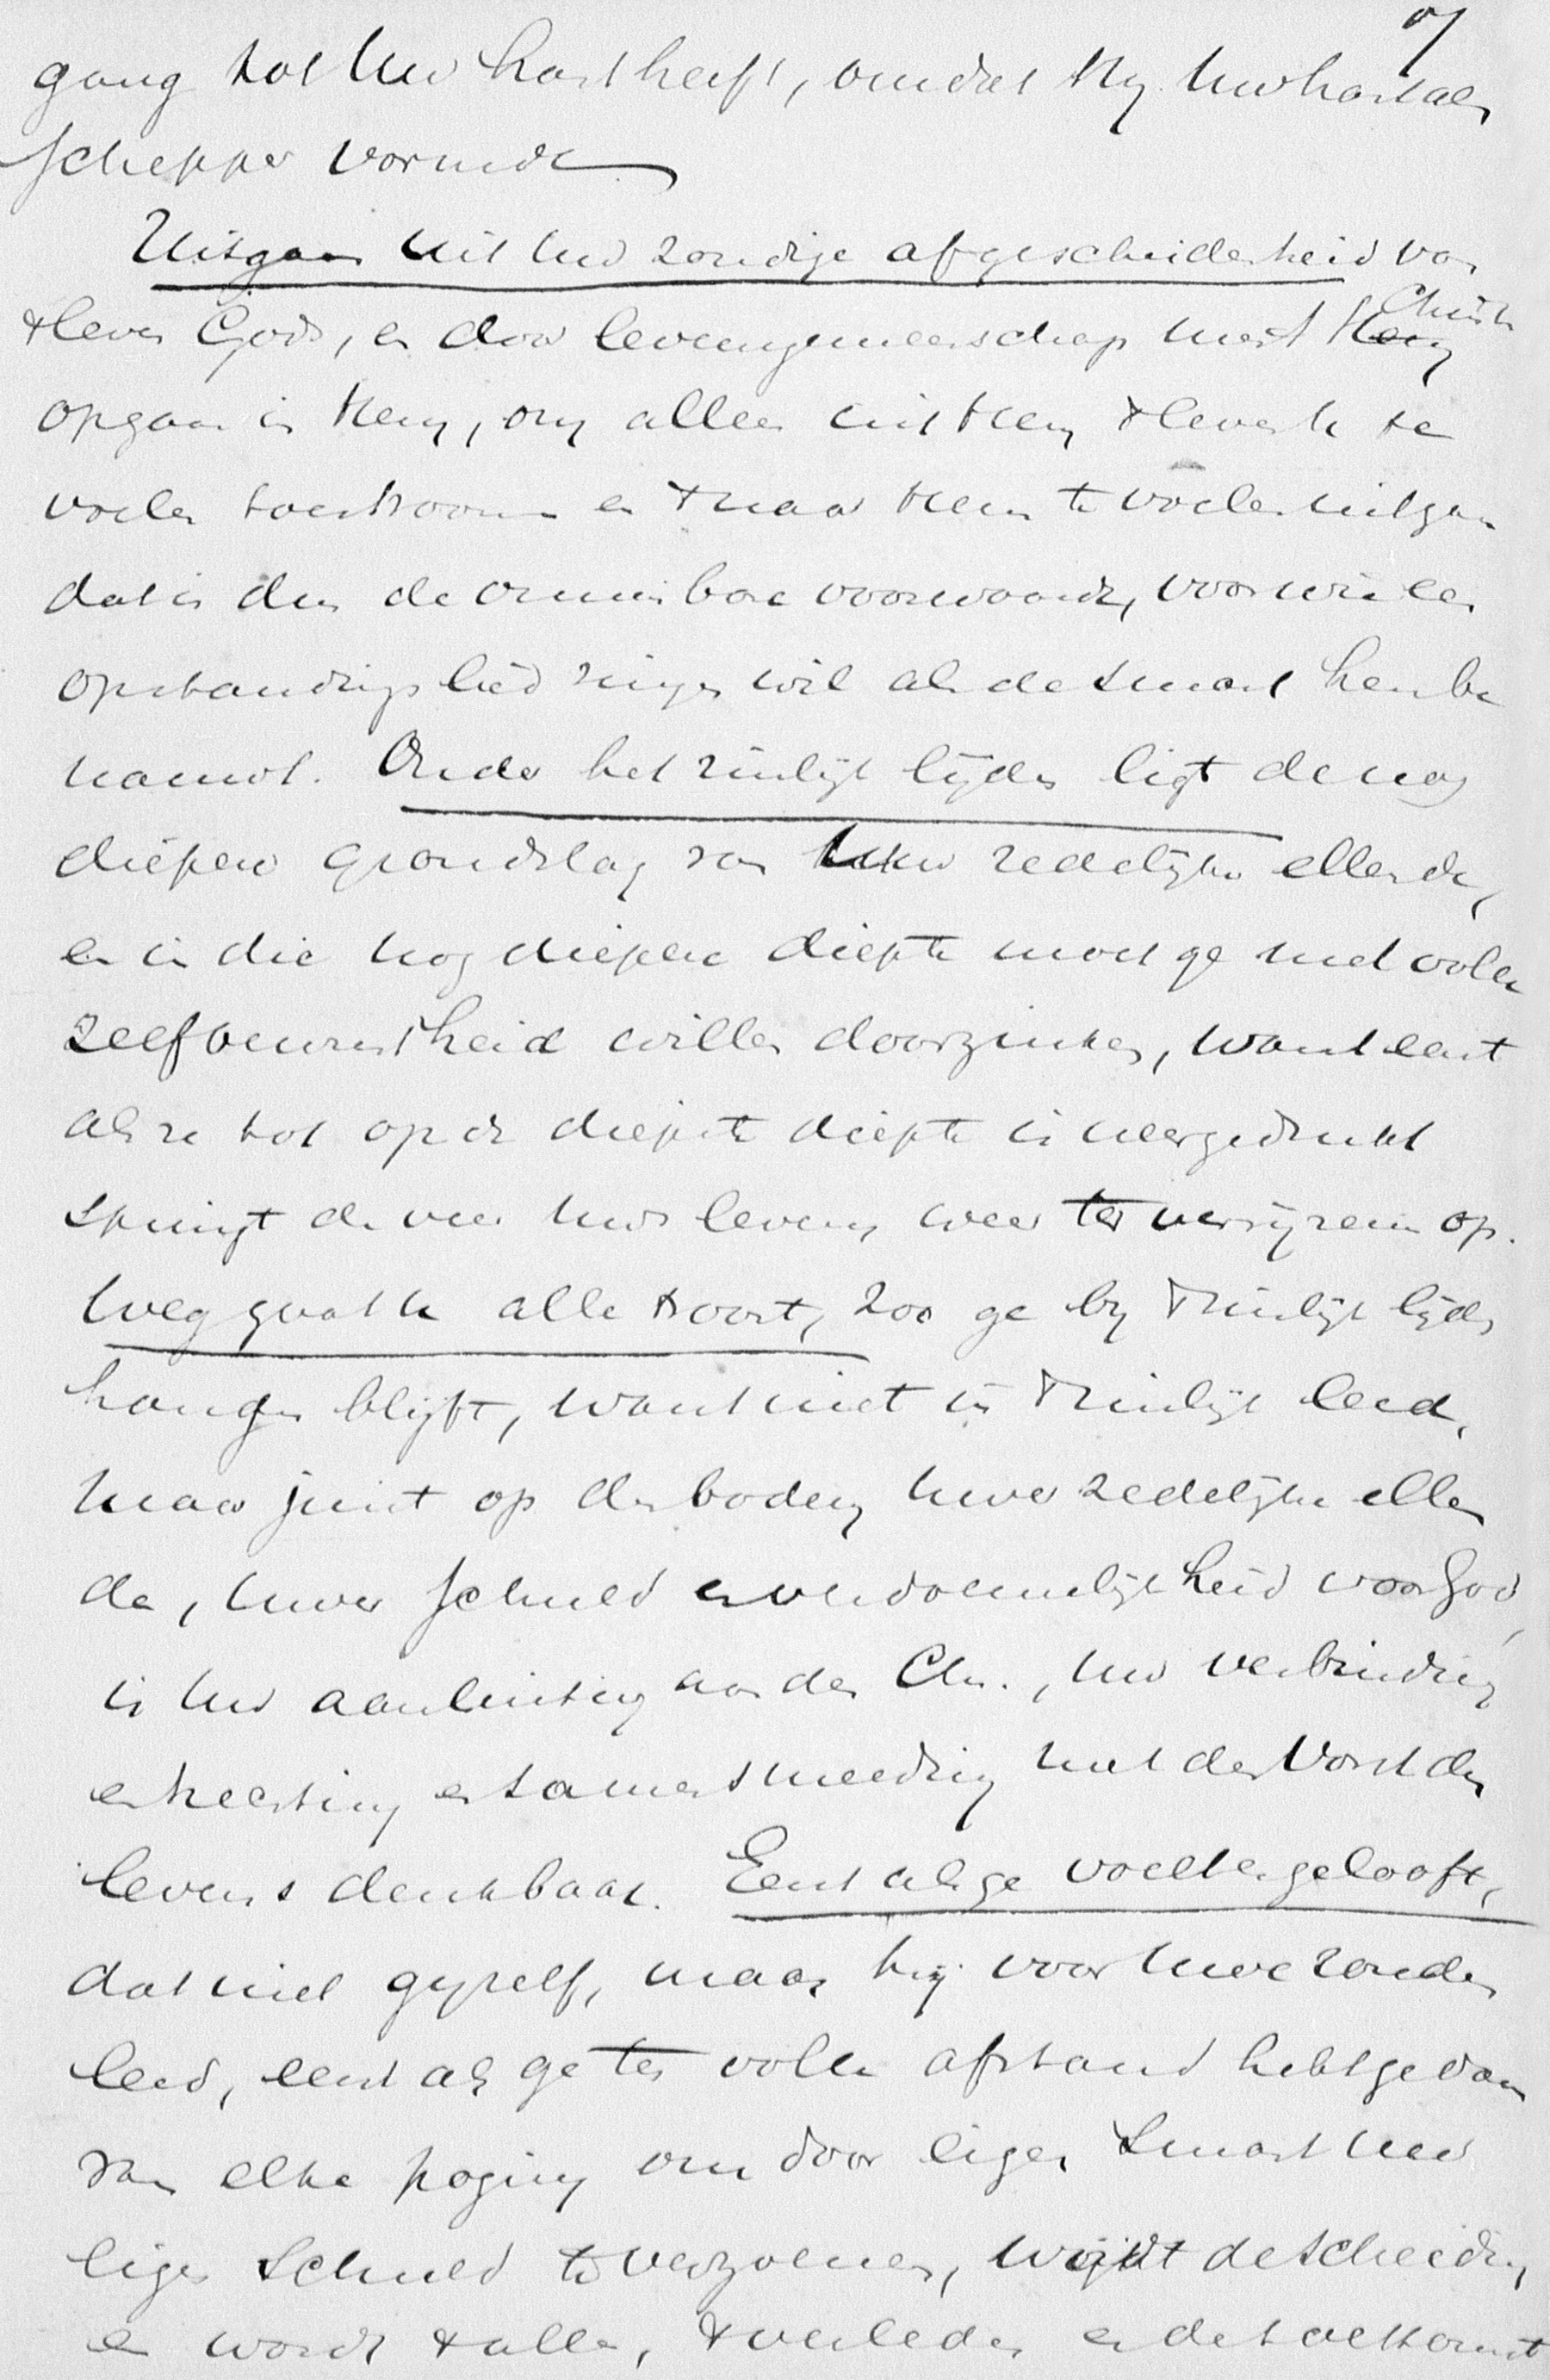 gang tot Uw hart heeft, omdat Hij Uw hart als
Schepper vormde
Uitgaan uit Uw zondige afgescheidenheid van
t leven Gods, en door levensgemeenschap met Christus
opgaan in Hem, om alleen uit Hem t leven te
voelen toestroomen en t naar Hem te voelen uitgaan
dat is dus de onmisbare voorwaarde, voor wie een
opstandingslied zingen wil als de smart hem be
nauwt. Onder het zinlijk lijden ligt de nog
diepere grondslag van Uw zedelijke ellende,
en in die nog diepere diepte moet ge met volle
zelfbewustheid willen doorzinken, want eerst
als ze tot op de diepste diepte is neergedrukt
springt de veer Uws levens weer ter verrijzenis op.
Weg gaat U alle troost, zoo ge bij t zinlijk lijden
hangen blijft, want niet in t zinlijk leed,
maar juist op den bodem Uwer zedelijke ellen
de, Uwer schuld en verdoemelijkheid voor God,
is Uw aansluiting aan den Chr., Uw verbinding
en hechting en samensmeeding met den Vorst des
levens denkbaar. Eerst als ge voelt en gelooft,
dat niet gijzelf, maar hij voor Uwe zonden
leed, eerst als ge ten volle afstand hebt gedaan
van elke poging om door eigen smart Uw
eigen schuld te verzoenen, wijkt de scheiding
en wordt t alles, t verleden en de toekomst